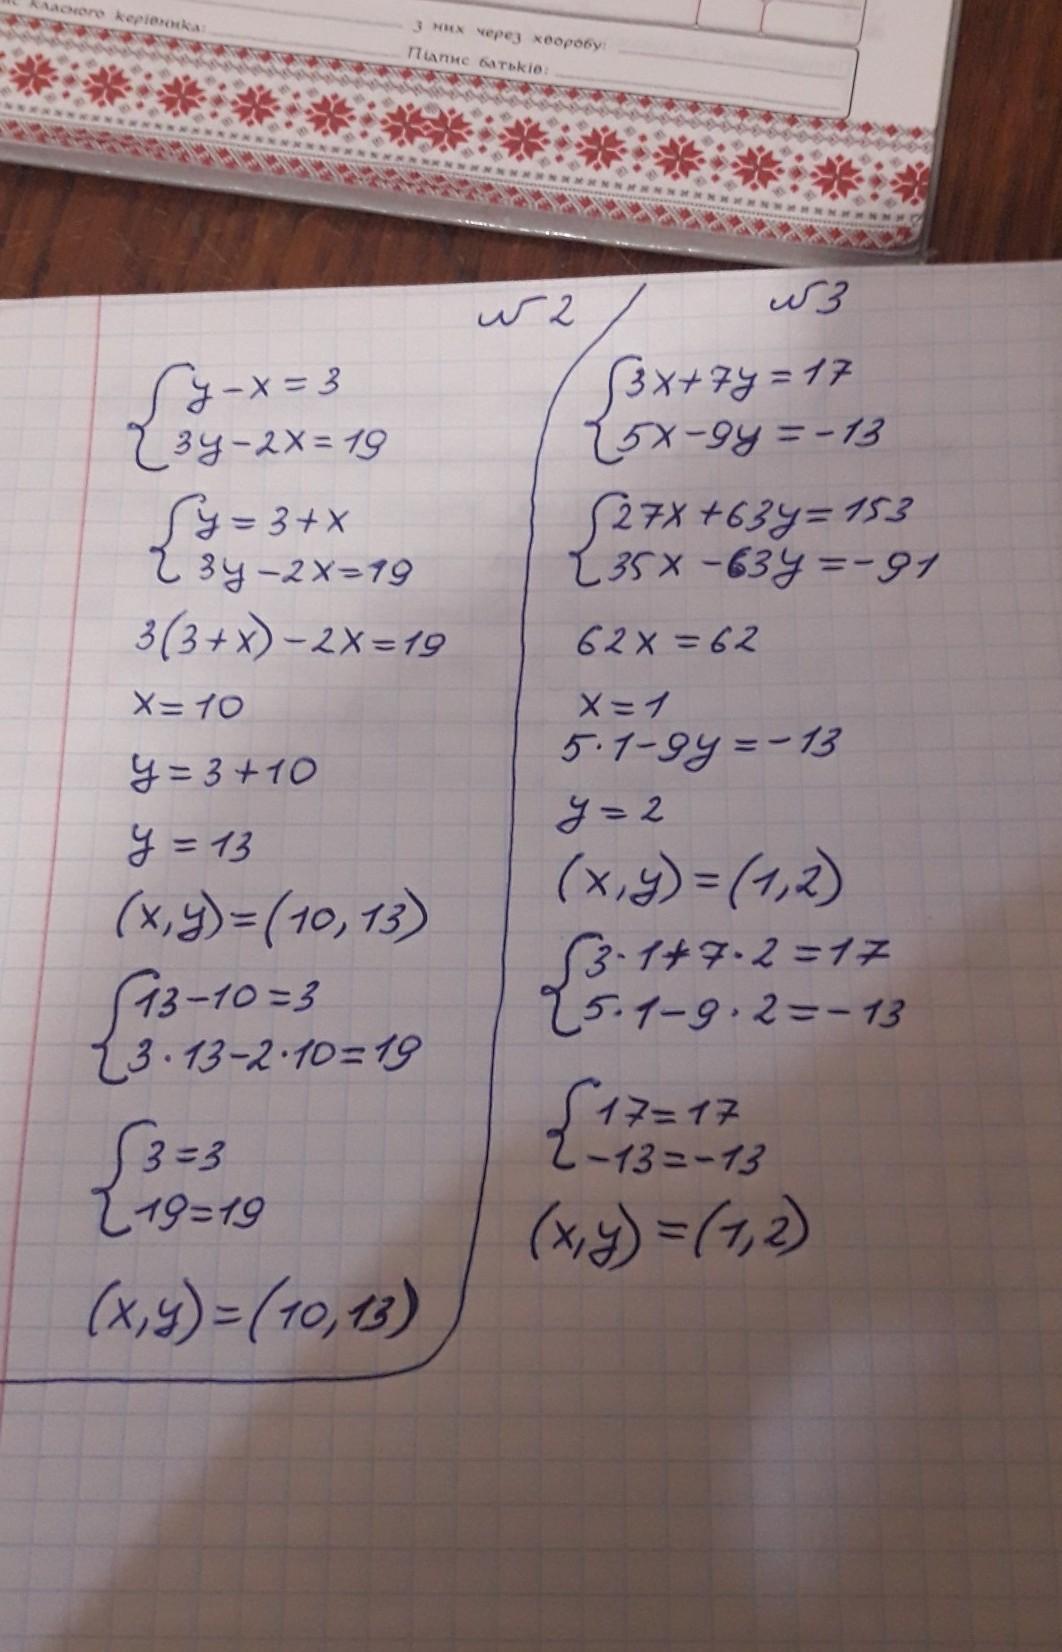 класного керівника:
з них через хворобу:
Підпис батьків:
№2
y-x=3
3y-2x=19
y=3+x
3y-2x=19
3(3+x)-2x=19
x=10
y=3+10
y=13
(x,y)=(10,13)
13-10=3
3·13-2·10=19
3=3
19=19
(x,y)=(10,13)
№3
3x+7y=17
5x-9y=-13
27x+63y=153
35x-63y=-91
62x=62
x=1
5·1-9y=-13
y=2
(x,y)=(1,2)
3·1+7·2=17
5·1-9·2=-13
17=17
-13=-13
(x,y)=(1,2)